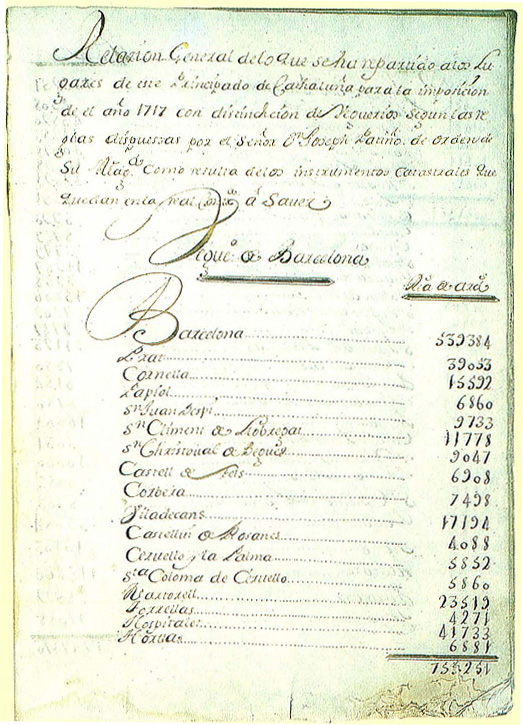 Relacion General delo que se ha repartido alos Lu
gares de este Principado de Cathaluña para la imposicion
de el año 1717 con distinchcion de Veguerios segun las re
glas dispuestas por el Señor Dn Joseph Patiño de orden de
Su Magd. Como resulta delos instrumentos Catastrales que
quedan en la real á Saver
Veguea. de Barcelona
Rs. de ardis.
Barcelona 539384
Prat 39053
Cornella 15592
Papiol 6860
Sn Juan Despi 9733
Sn Climent de Llobregat 11778
Sn Christoual de Begues 9047
Castell de fels 6908
Corbera 7498
Viladecans 17194
Castellvi de Rosanes 4088
Ceruello y la Palma 5852
Sta Coloma de Ceruello 5860
Martorell 23519
Torrellas 4271
Hospitalet 41733
6881
755251